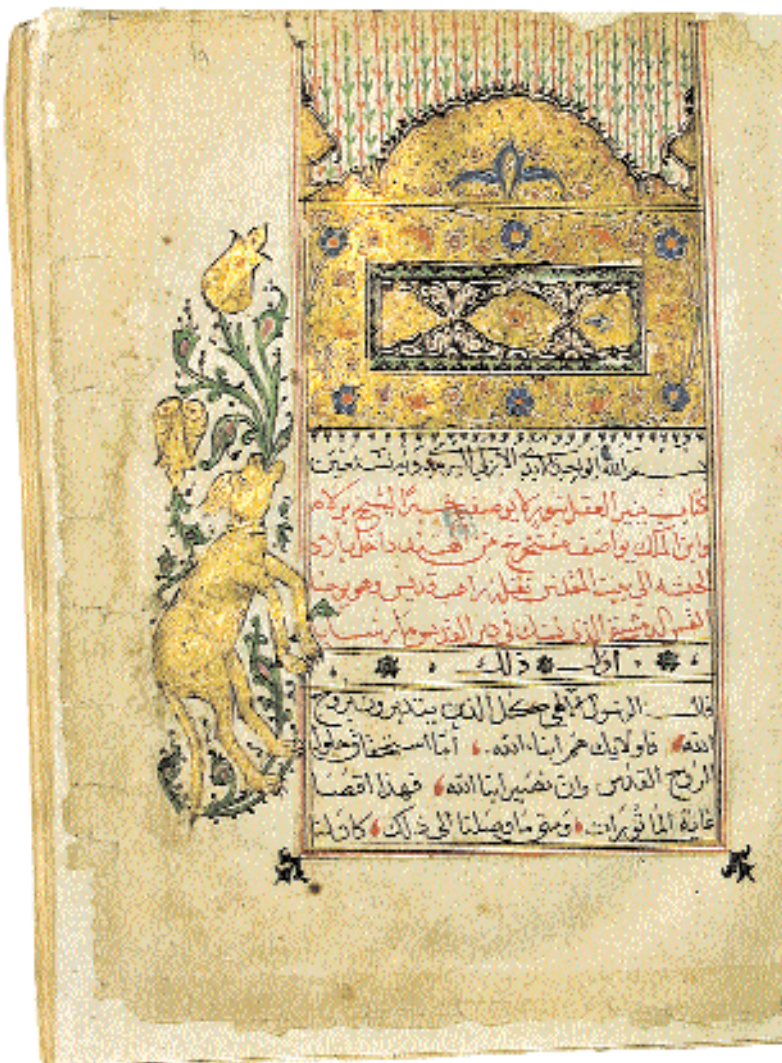 بسم الله الواحد الابدي الازلي السرمدي وبه نستعين
كتاب ينير العقل يوصف خبر الشيخ برلام
وابن الملك يواصف مستخرج من داخل بلاد
الحبشه الي بيت المقدس نقله راهب قديس وهو يوحنا
القس الدمشقي الذي نسك في دير القديس مار سابا
اول ذلك
قال الرسول كل الذين يتدبرون بروح
الله فاولايك هم ابناء الله. اما استحقاق حلول
الروح القدس وان نصير ابنا الله فهذا اقصا
غاية الماثورات ومتي ما وصلنا الي ذلك كما قلنا